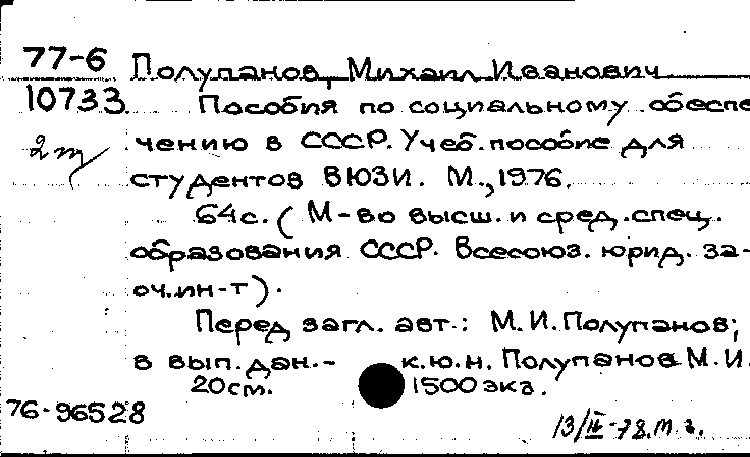 77-6 Полупанов, Михаил Иванович
10733 Пособия по социальному обеспе
2 т чению в СССР. Учеб. пособие для
студентов ВЮЗИ. М., 1976.
64с. (М-во высш. и сред. спец.
образования СССР. Всесоюз. юрид. за-
оч. ин-т).
Перед загл. авт.: М.И. Полупанов;
в вып. дан.- к.ю.н. Полупанов М.И.
20см. 1500 экз.
76-96528
13/II-78.